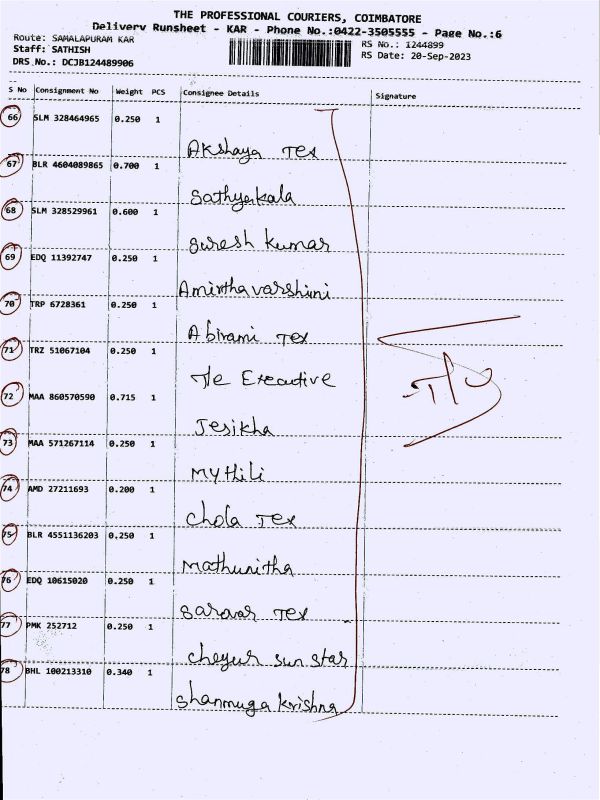 THE PROFESSIONAL COURIERS, COIMBATORE
Delivery Runsheet - KAR - Phone No.:0422-3505555 - Page No.:6
Route: SAMALAPURAM KAR
RS No.: 1244899
Staff: SATHISH
RS Date: 20-Sep-2023
DRS No.: DCJB124489906
S No Consignment No Weight PCS Consignee Details Signature
66 SLM 328464965 0.250 1
Akshaya Tex
67 BLR 4604089865 0.700 1
Sathyakala
68 SLM 328529961 0.600 1
Suresh kumar
69 EDQ 11392747 0.250 1
Amirthavarshini
70 TRP 6728361 0.250 1
Abirami Tex
71 TRZ 51067104 0.250 1
The Executive
72 MAA 860570590 0.715 1
Jesikha
73 MAA 571267114 0.250 1
Mythili
74 AMD 27211693 0.200 1
Chola Tex
75 BLR 4551136203 0.250 1
Mathunitha
76 EDQ 10615020 0.250 1
Saravar Tex
77 PMK 252712 0.250 1
Cheyur sun star
78 BHL 100213310 0.340 1
Shanmuga krishna